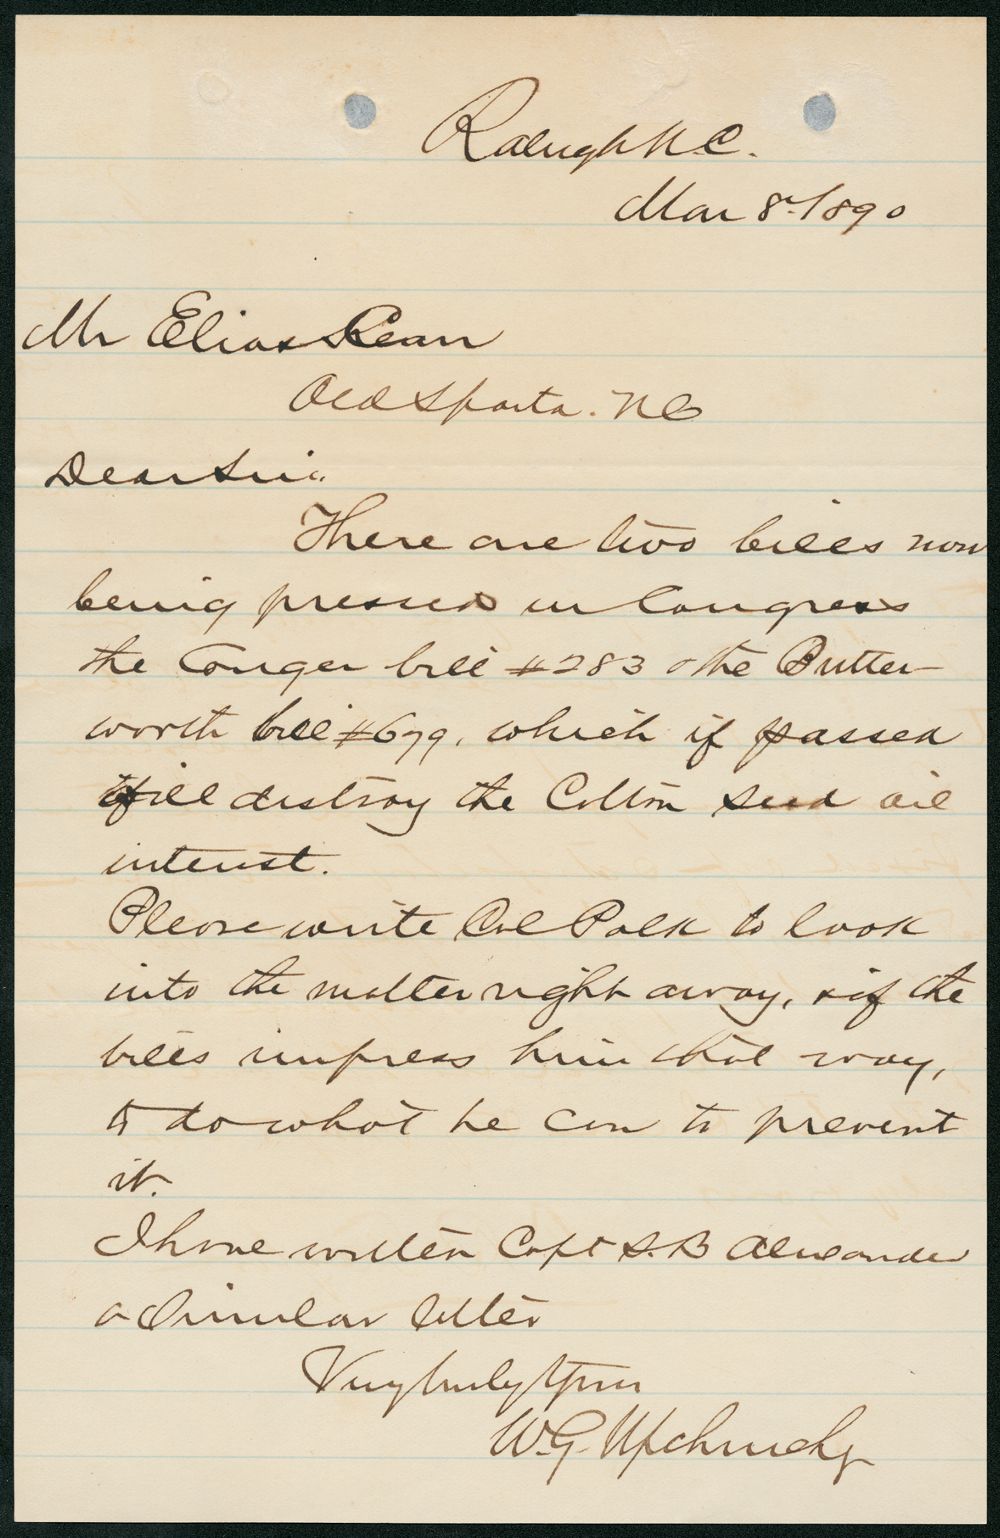 Raleigh N.C.
Mar 8th/1890
Mr Elias Carr
Old Sparta. NC
Dear Sir:
There are two bills now
being pressed in Congress
the Conger bill #283 & the Butter-
worth bill #679, which if passed
will destroy the Cotton Seed oil
interest.
Please write Col Polk to look
into the matter right away, & if the
bills impress him that way,
to do what he can to prevent
it.
I have written Capt S. B Alexander
a Similar letter
Very truly Yours
W. G. Upchurch